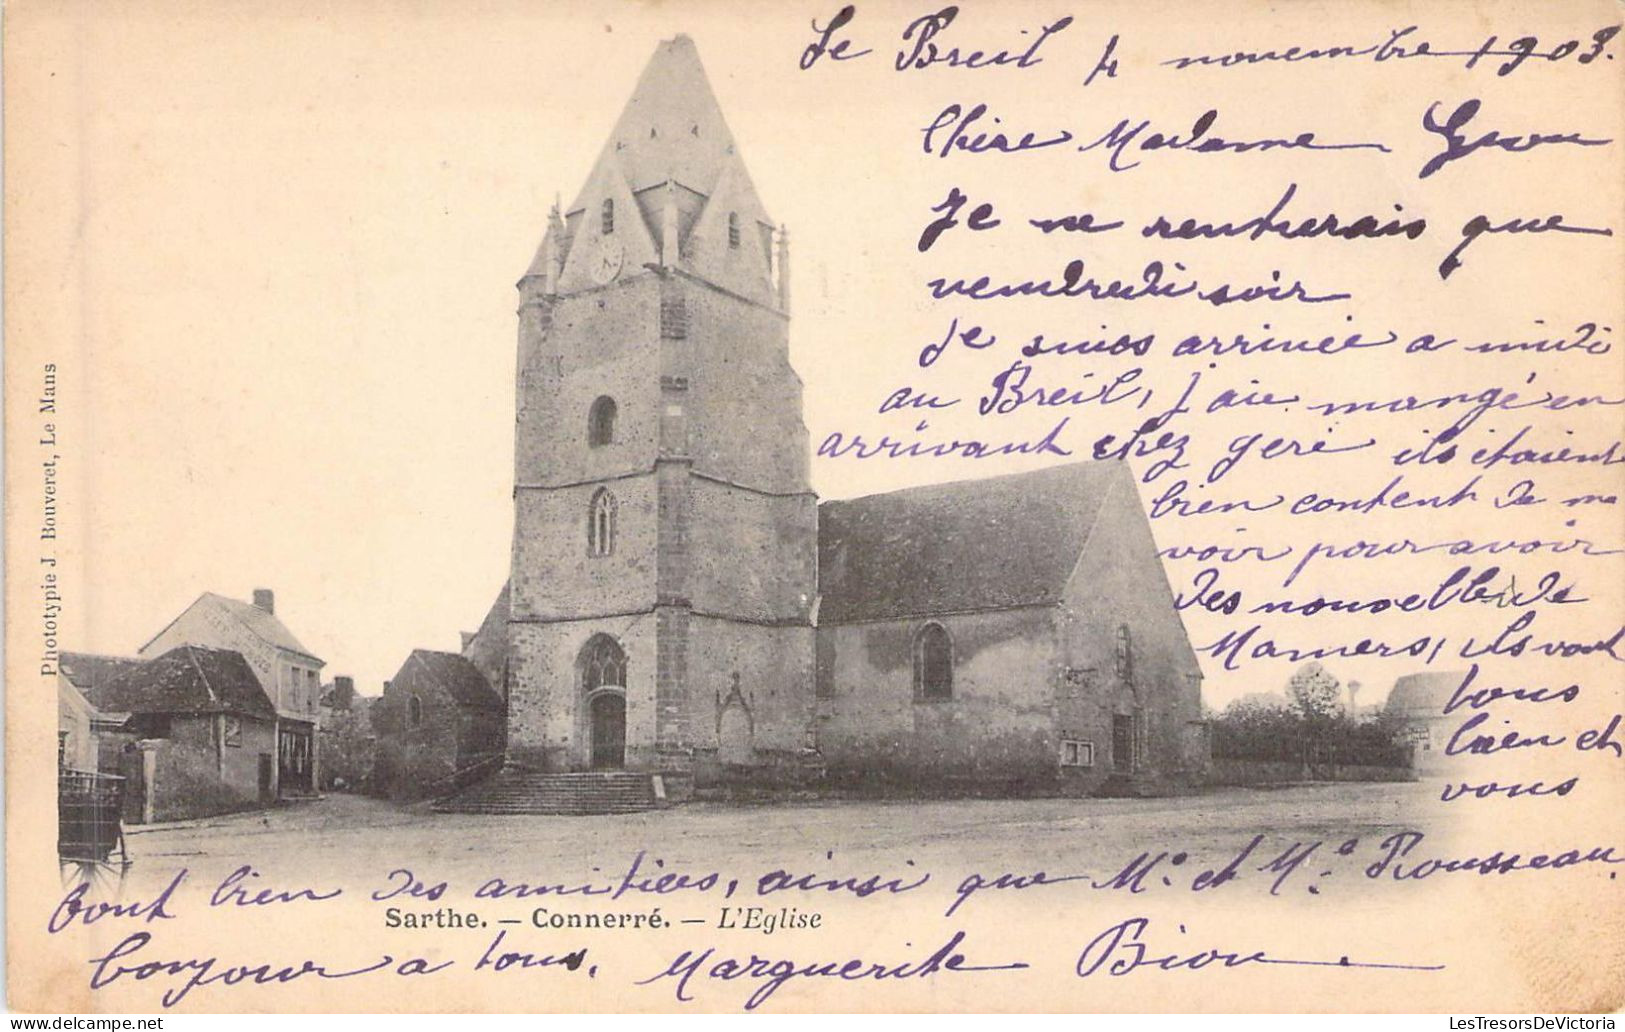 Le Breil 4 novembre 1903.
Chère Madame
Je ne rentrerais que
vendredi soir
Je suies arrivée a midi
au Breil, j'aie mangé en
arrivant chez geré ils étaient
bien content de me
voir pour avoir
des nouvelle de
Mamers, ils vont
tous
bien et
vous
font bien des amitiées, ainsi que Mr. et Me. Rousseau.
Sarthe. — Connerré. — L'Eglise
bonjour a tous. Marguerite Bion.
Phototypie J. Bouveret, Le Mans
LesTresorsDeVictoria